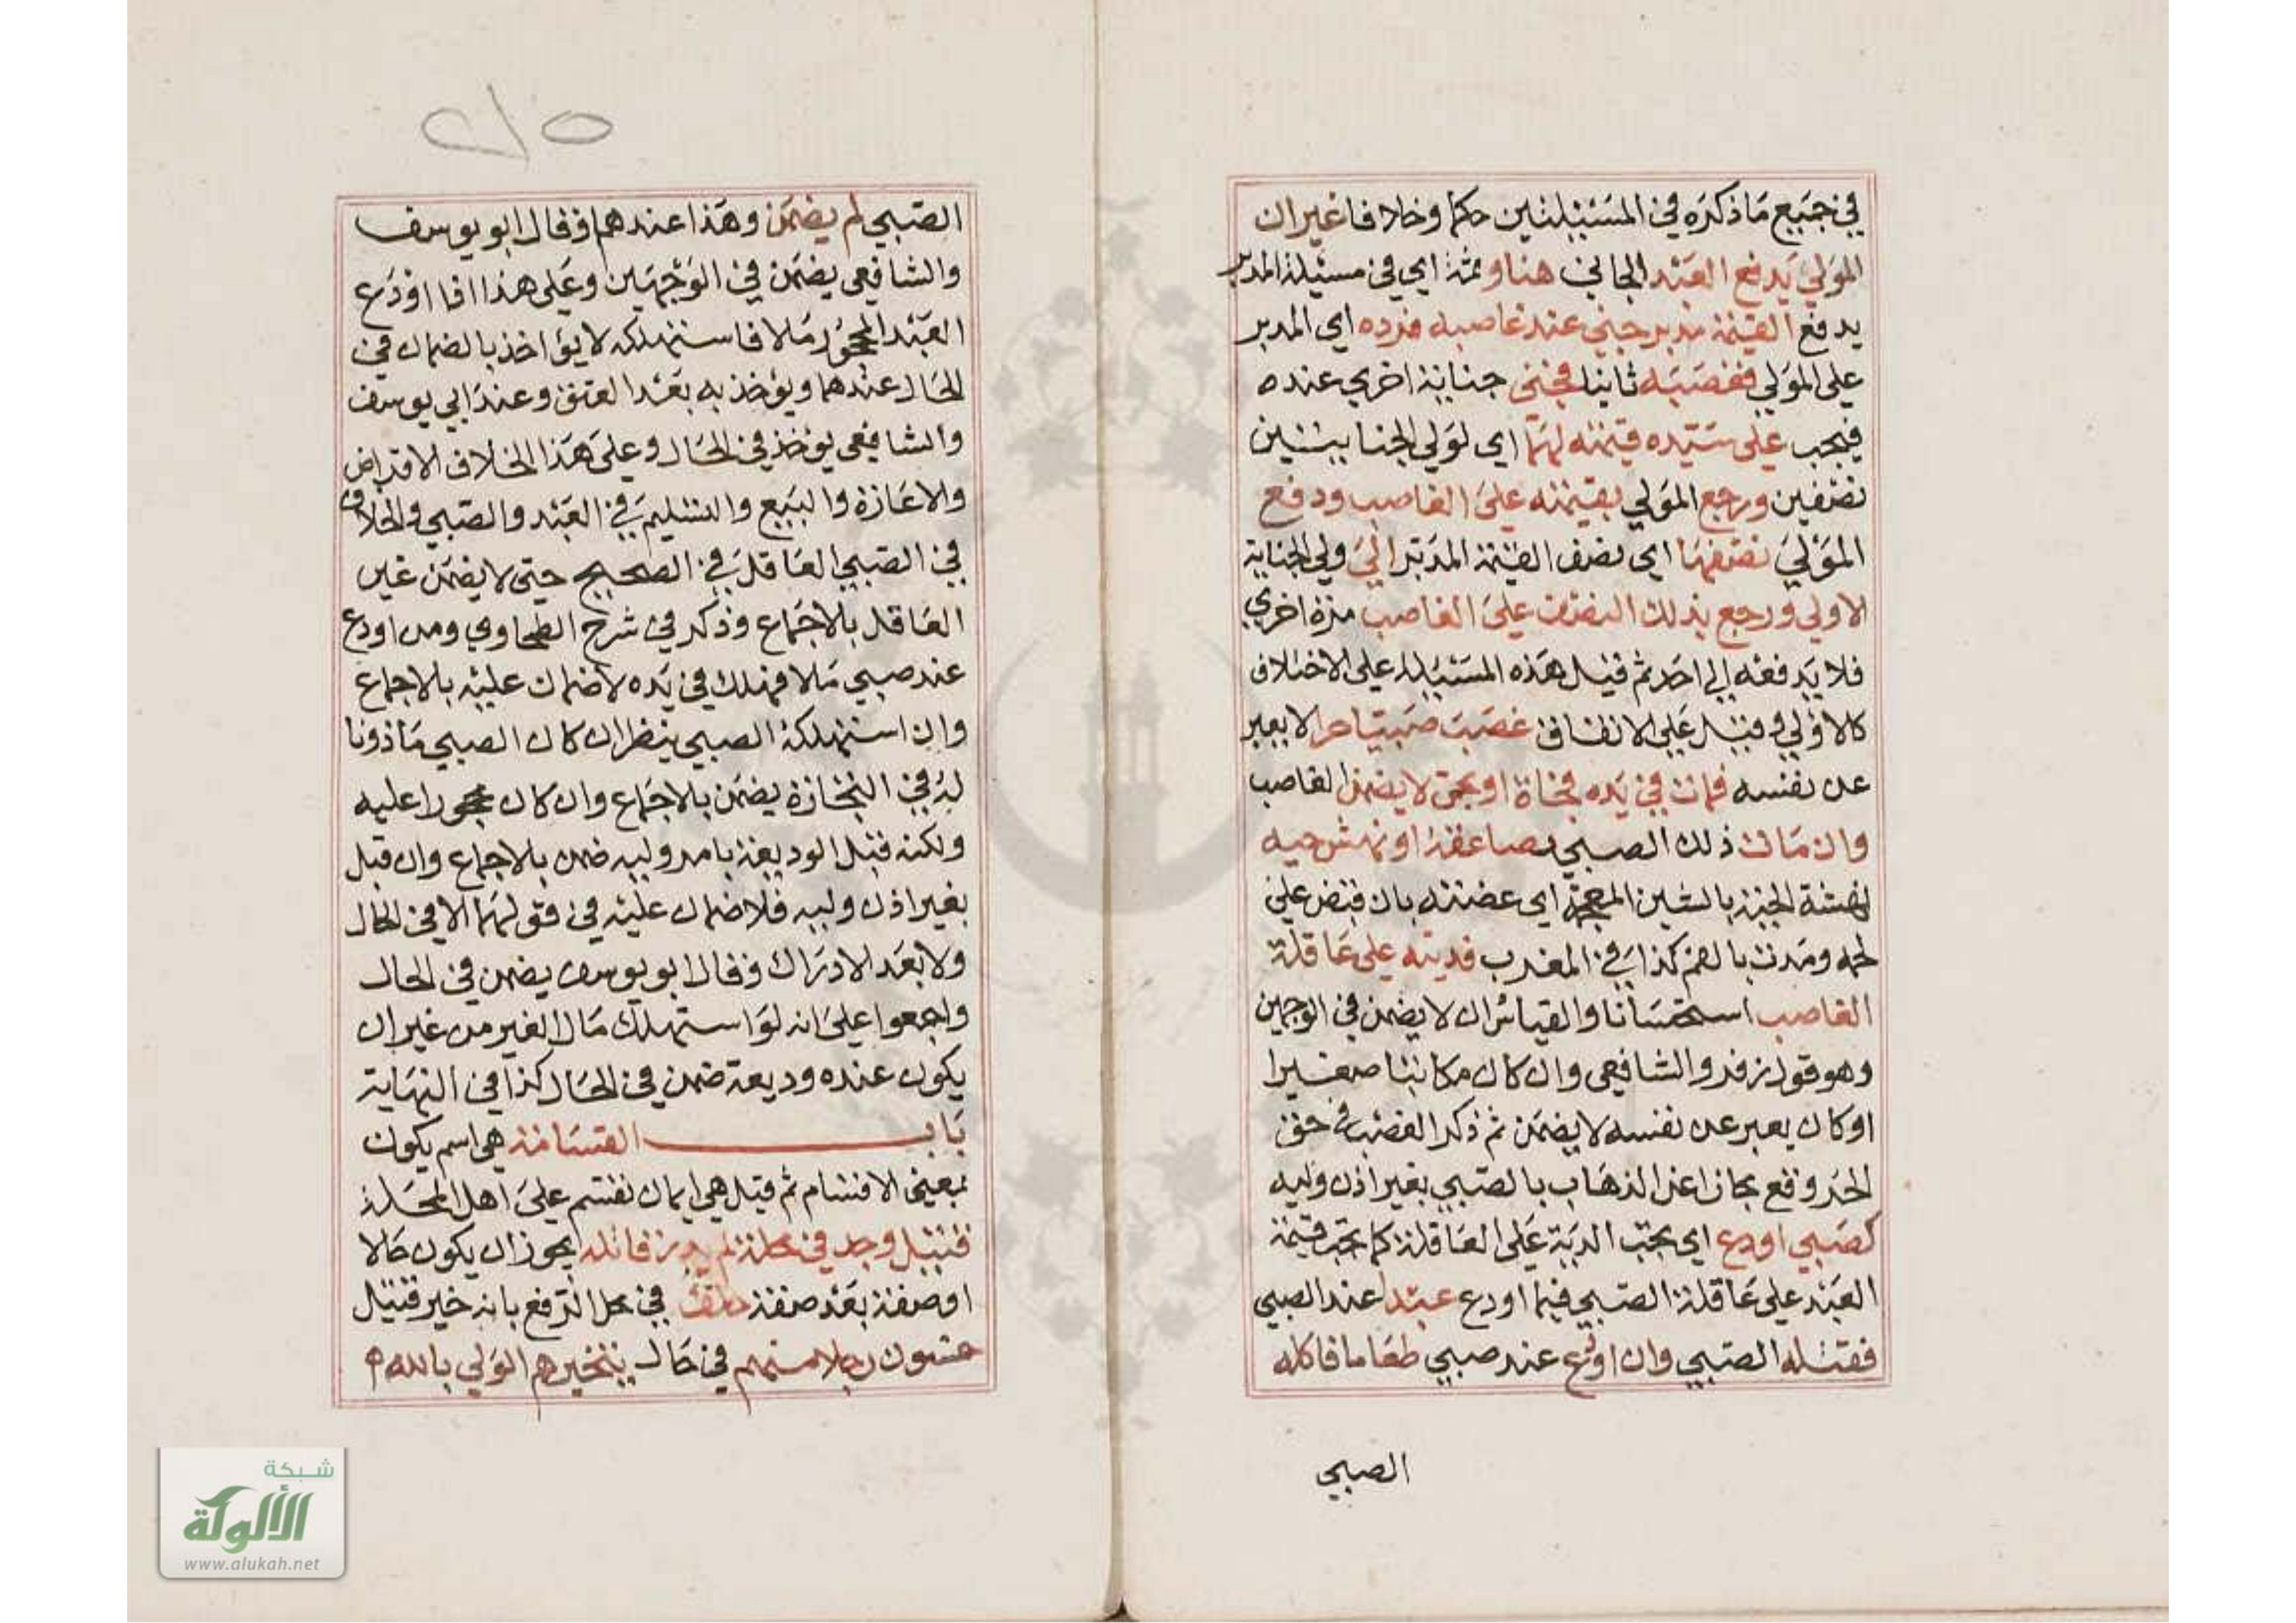 في جميع ما ذكره في المسئلتين حكما وخلافا غير ان
المولي يدفع العبد الجاني هنا وثمة اي في مسئلة المدبر
يدفع القيمة مدبر جني عند غاصبه فرده اي المدبر
على المولي فغصبه ثانيا فجنى جناية اخري عنده
فيجب على سيده قيمته لهما اي لولي الجنايتين
نصفين ورجع المولي بقيمته على الغاصب ودفع
المولي نصفها اي نصف القيمة المدبر الي ولي الجناية
الاولي ورجع بذلك النصف على الغاصب مرة اخري
فلا يدفعه إلى احد ثم قيل هذه المسئيلة على الاختلاف
كالاولي وقيل على الاتفاق غصب صبيا حرا لا يعبر
عن نفسه فمات في يده فجاة او بحمى لا يضمن الغاصب
وان مات ذلك الصبي بصاعقة او نهش حية
نهشة الحية بالشين المعجمة اي عضته بان قبض على
لحمه ومدت بالفم كذا في المغرب فديته على عاقلة
الغاصب استحسانا والقياس ان لا يضمن في الوجهين
وهو قول زفر والشافعي وان كان مكاتبا صغيرا
او كان يعبر عن نفسه لا يضمن ثم ذكر الغصب في حق
الحر وقع مجازا عن الذهاب بالصبي بغير اذن وليه
كصبي اودع اي يجب الدية على العاقلة كما يجب قيمة
العبد على عاقلة الصبي فيما اودع عبدا عند الصبي
فقتله الصبي وان اودع عند صبي طعاما فاكله
الصبي
٢١٥
الصبي لم يضمن وهذا عندهما وقال ابو يوسف
والشافعي يضمن في الوجهين وعلى هذا اذا اودع
العبد المحجور مالا فاستهلكه لا يؤاخذ بالضمان في
الحال عندهما ويؤخذ به بعد العتق وعند ابي يوسف
والشافعي يؤخذ في الحال وعلى هذا الخلاف الاقراض
والاعارة والبيع والتسليم في العبد والصبي والخلاف
في الصبي العاقل في الصحيح حتى لا يضمن غير
العاقل بالاجماع وذكر في شرح الطحاوي ومن اودع
عند صبي مالا فهلك في يده لا ضمان عليه بالاجماع
وان استهلكه الصبي ينظر ان كان الصبي ماذونا
له في التجارة يضمن بالاجماع وان كان محجورا عليه
ولكنه قبل الوديعة بامر وليه ضمن بالاجماع وان قبل
بغير اذن وليه فلا ضمان عليه في قولهما لا في الحال
ولا بعد الادراك وقال ابو يوسف يضمن في الحال
واجمعوا على انه لو استهلك مال الغير من غير ان
يكون عنده وديعة ضمن في الحال كذا في النهاية
باب القسامة هي اسم يكون
بمعنى الاقسام ثم قيل هي ايمان تقسم على اهل المحلة
قتيل وجد في محلة لم يدر قاتله يجوز ان يكون حالا
او صفة بعد صفة حلف في محل الرفع بانه خبر قتيل
خمسون رجلا منهم في حال يتخيرهم الولي بالله م
شبكة
الألوكة
www.alukah.net